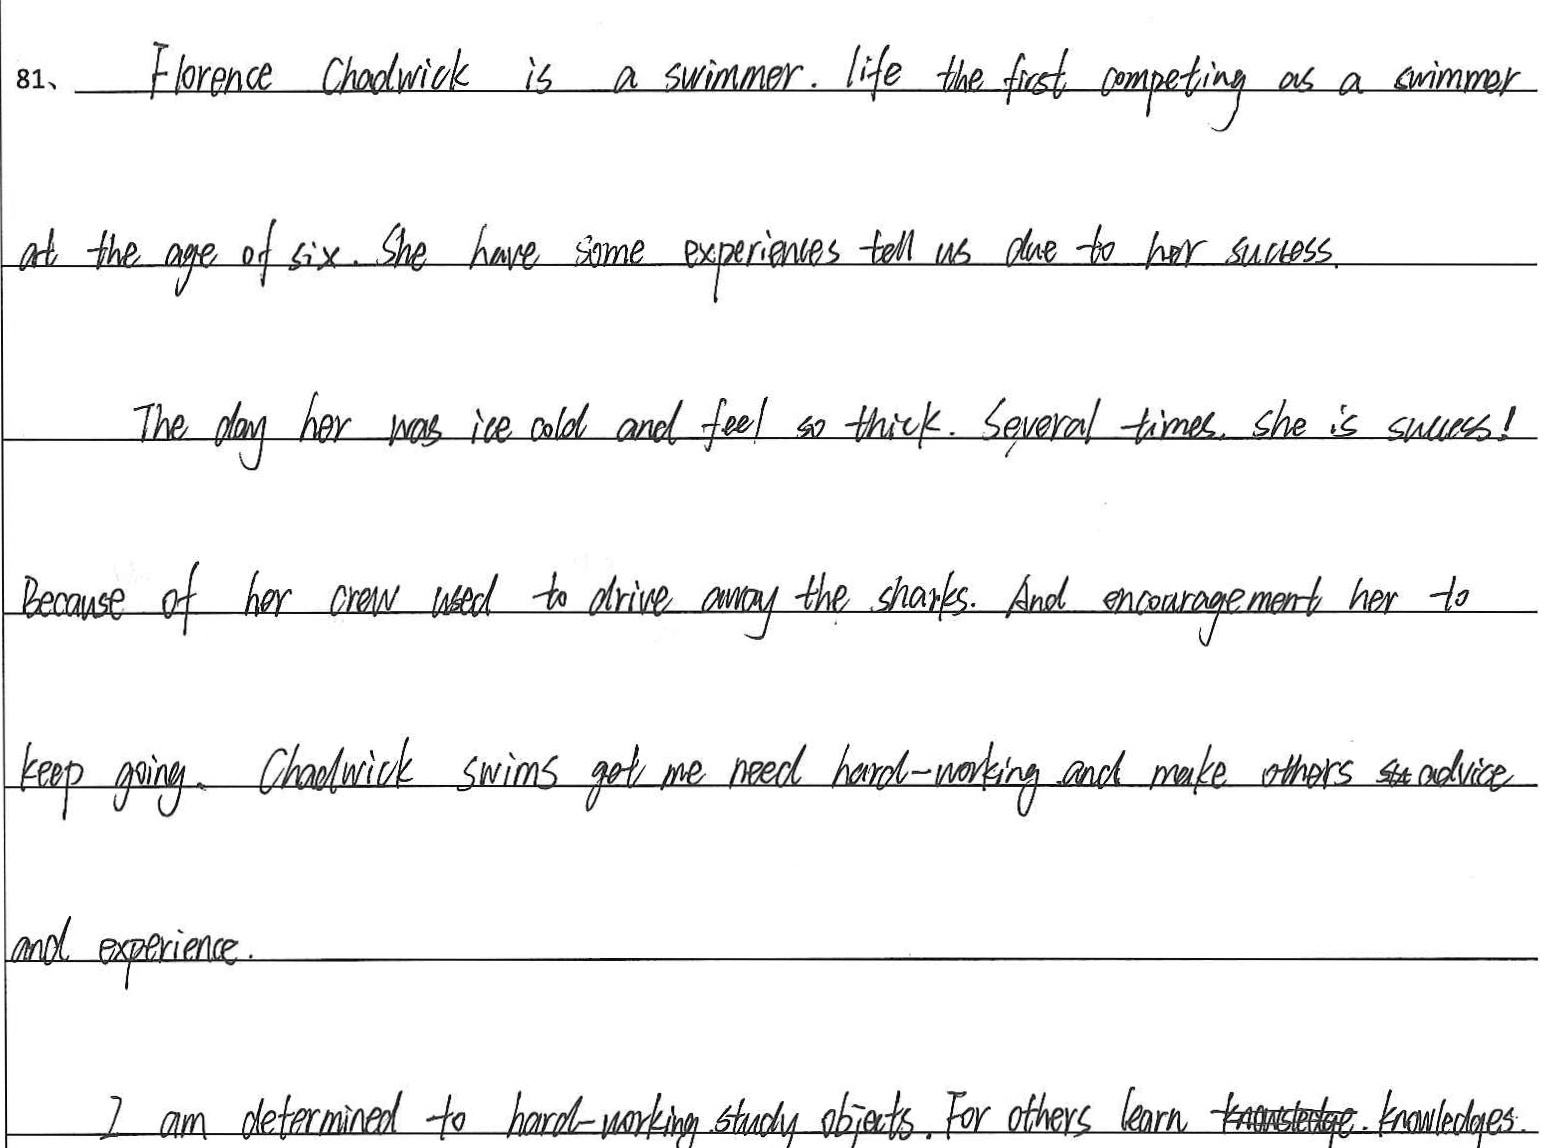 81、 Florence Chadwick is a swimmer. life the first competing as a swimmer
at the age of six. She have some experiences tell us due to her success.
The day her was ice cold and feel so thick. Several times. she is success!
Because of her crew used to drive away the sharks. And encouragement her to
keep going. Chadwick swims got me need hard-working and make others advice
and experience.
I am determined to hard-working study objects. For others learn knowledge. knowledges.